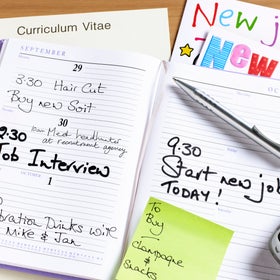 Curriculum Vitae
New jo
New
SEPTEMBER
29
3:30 Hair Cut
Buy new Soit
30
9:30 10am Meet headhunter
at recruitment agency
Job Interview
OCTOBER
1
bration Drinks wiv
Mike & Jan
9:30
Start new job
TODAY!
To
Buy
champagne
&
Snacks